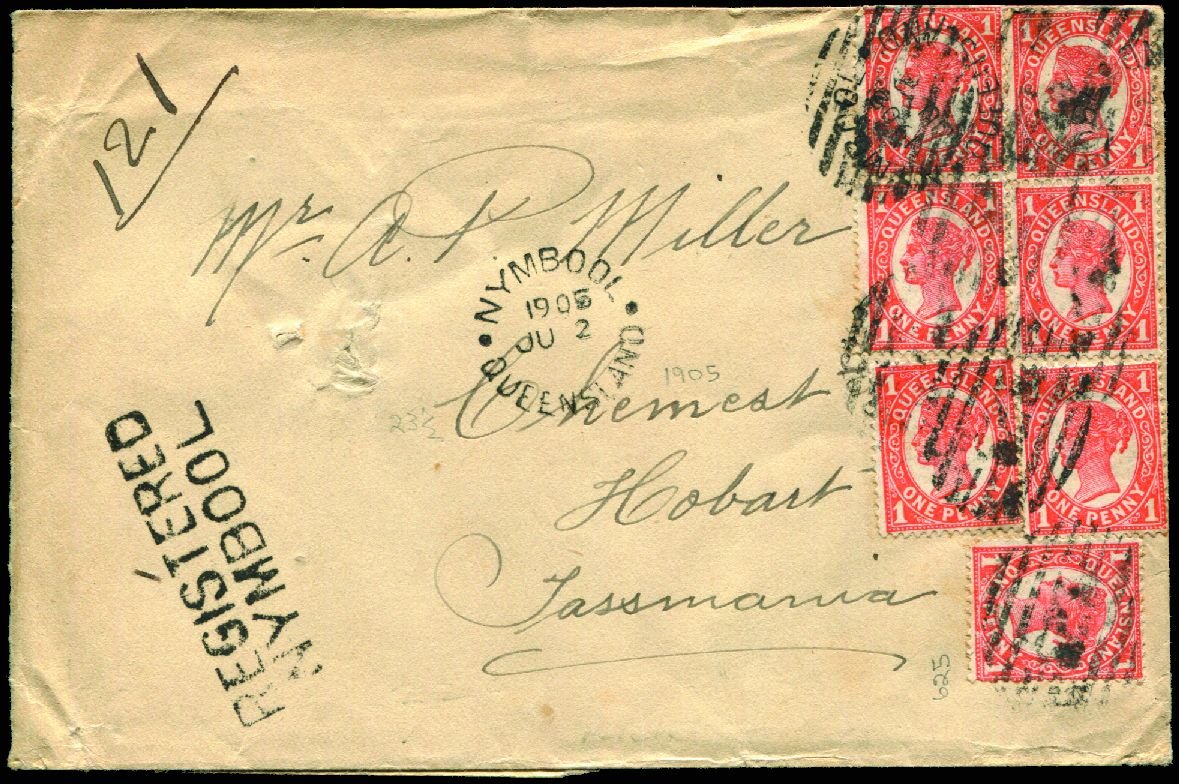 121
Mr. A. P. Miller
Chemest
Hobart
Tassmania
NYMBOOL
1905
JU 2
QUEENSLAND
1905
23½
625
REGISTERED
NYMBOOL
1 1
QUEENSLAND
ONE PENNY
1 1
1 1
QUEENSLAND
ONE PENNY
1 1
1 1
QUEENSLAND
ONE PENNY
1 1
1 1
QUEENSLAND
ONE PENNY
1 1
1 1
QUEENSLAND
ONE PENNY
1 1
1 1
QUEENSLAND
ONE PENNY
1 1
1 1
QUEENSLAND
ONE PENNY
1 1